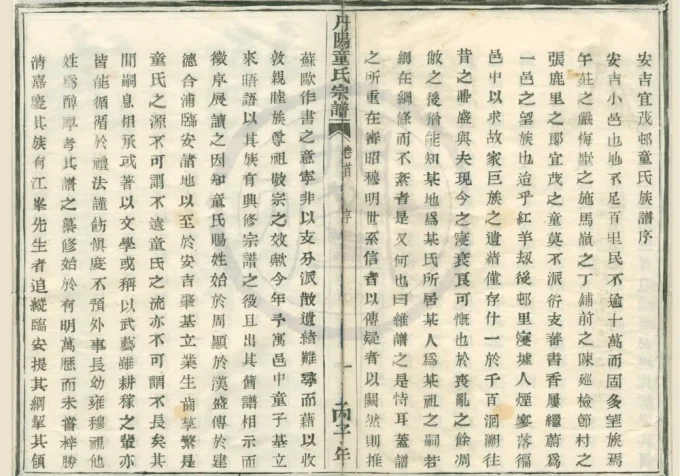 安吉宜茂邨童氏族譜序
安吉小邑也地不足百里民不逾十萬而固多望族焉
午莊之嚴梅墺之施馬嶺之丁鋪前之陳廵檢節村之
張鹿里之郎宜茂之童莫不派衍支蕃書香屢繼蔚爲
一邑之望族也迨乎紅羊刼後邨里寥墟人煙寥落福
邑中以求故家巨族之遺緒僅存什一於千百洄溯往
昔之鼎盛與夫現今之寖衰良可慨也於喪亂之餘凋
敝之後猶能知某地爲某氏所居某人爲某祖之嗣若
網在綱條而不紊者是又何也曰維譜之是恃耳蓋譜
之所重在審昭穆明世系信者以傳疑者以闕然則推
丹陽童氏宗譜
卷首
序
一
丙子年
蘇歐作書之意寕非以支分派散遺緒難尋而藉以收
敦親睦族尊祖敬宗之效歟今年予寓邑中童子基立
來晤語以其族有興修宗譜之役且出其舊譜相示而
徵序展讀之因知童氏賜姓始於周顯於漢盛傳於建
德合浦臨安諸地以至於安吉肇基立業生齒摯繁是
童氏之源不可謂不遠童氏之流亦不可謂不長矣其
間嗣息相承或著以文學或稱以武藝雖耕稼之輩亦
皆能循循於禮法謹飭惧慶不預外事長幼雍穆視他
姓爲醇厚考其譜之纂修始於有明萬應而未嘗梓勝
清嘉慶其族有江峯先生者追縱臨安提其綱挈其領